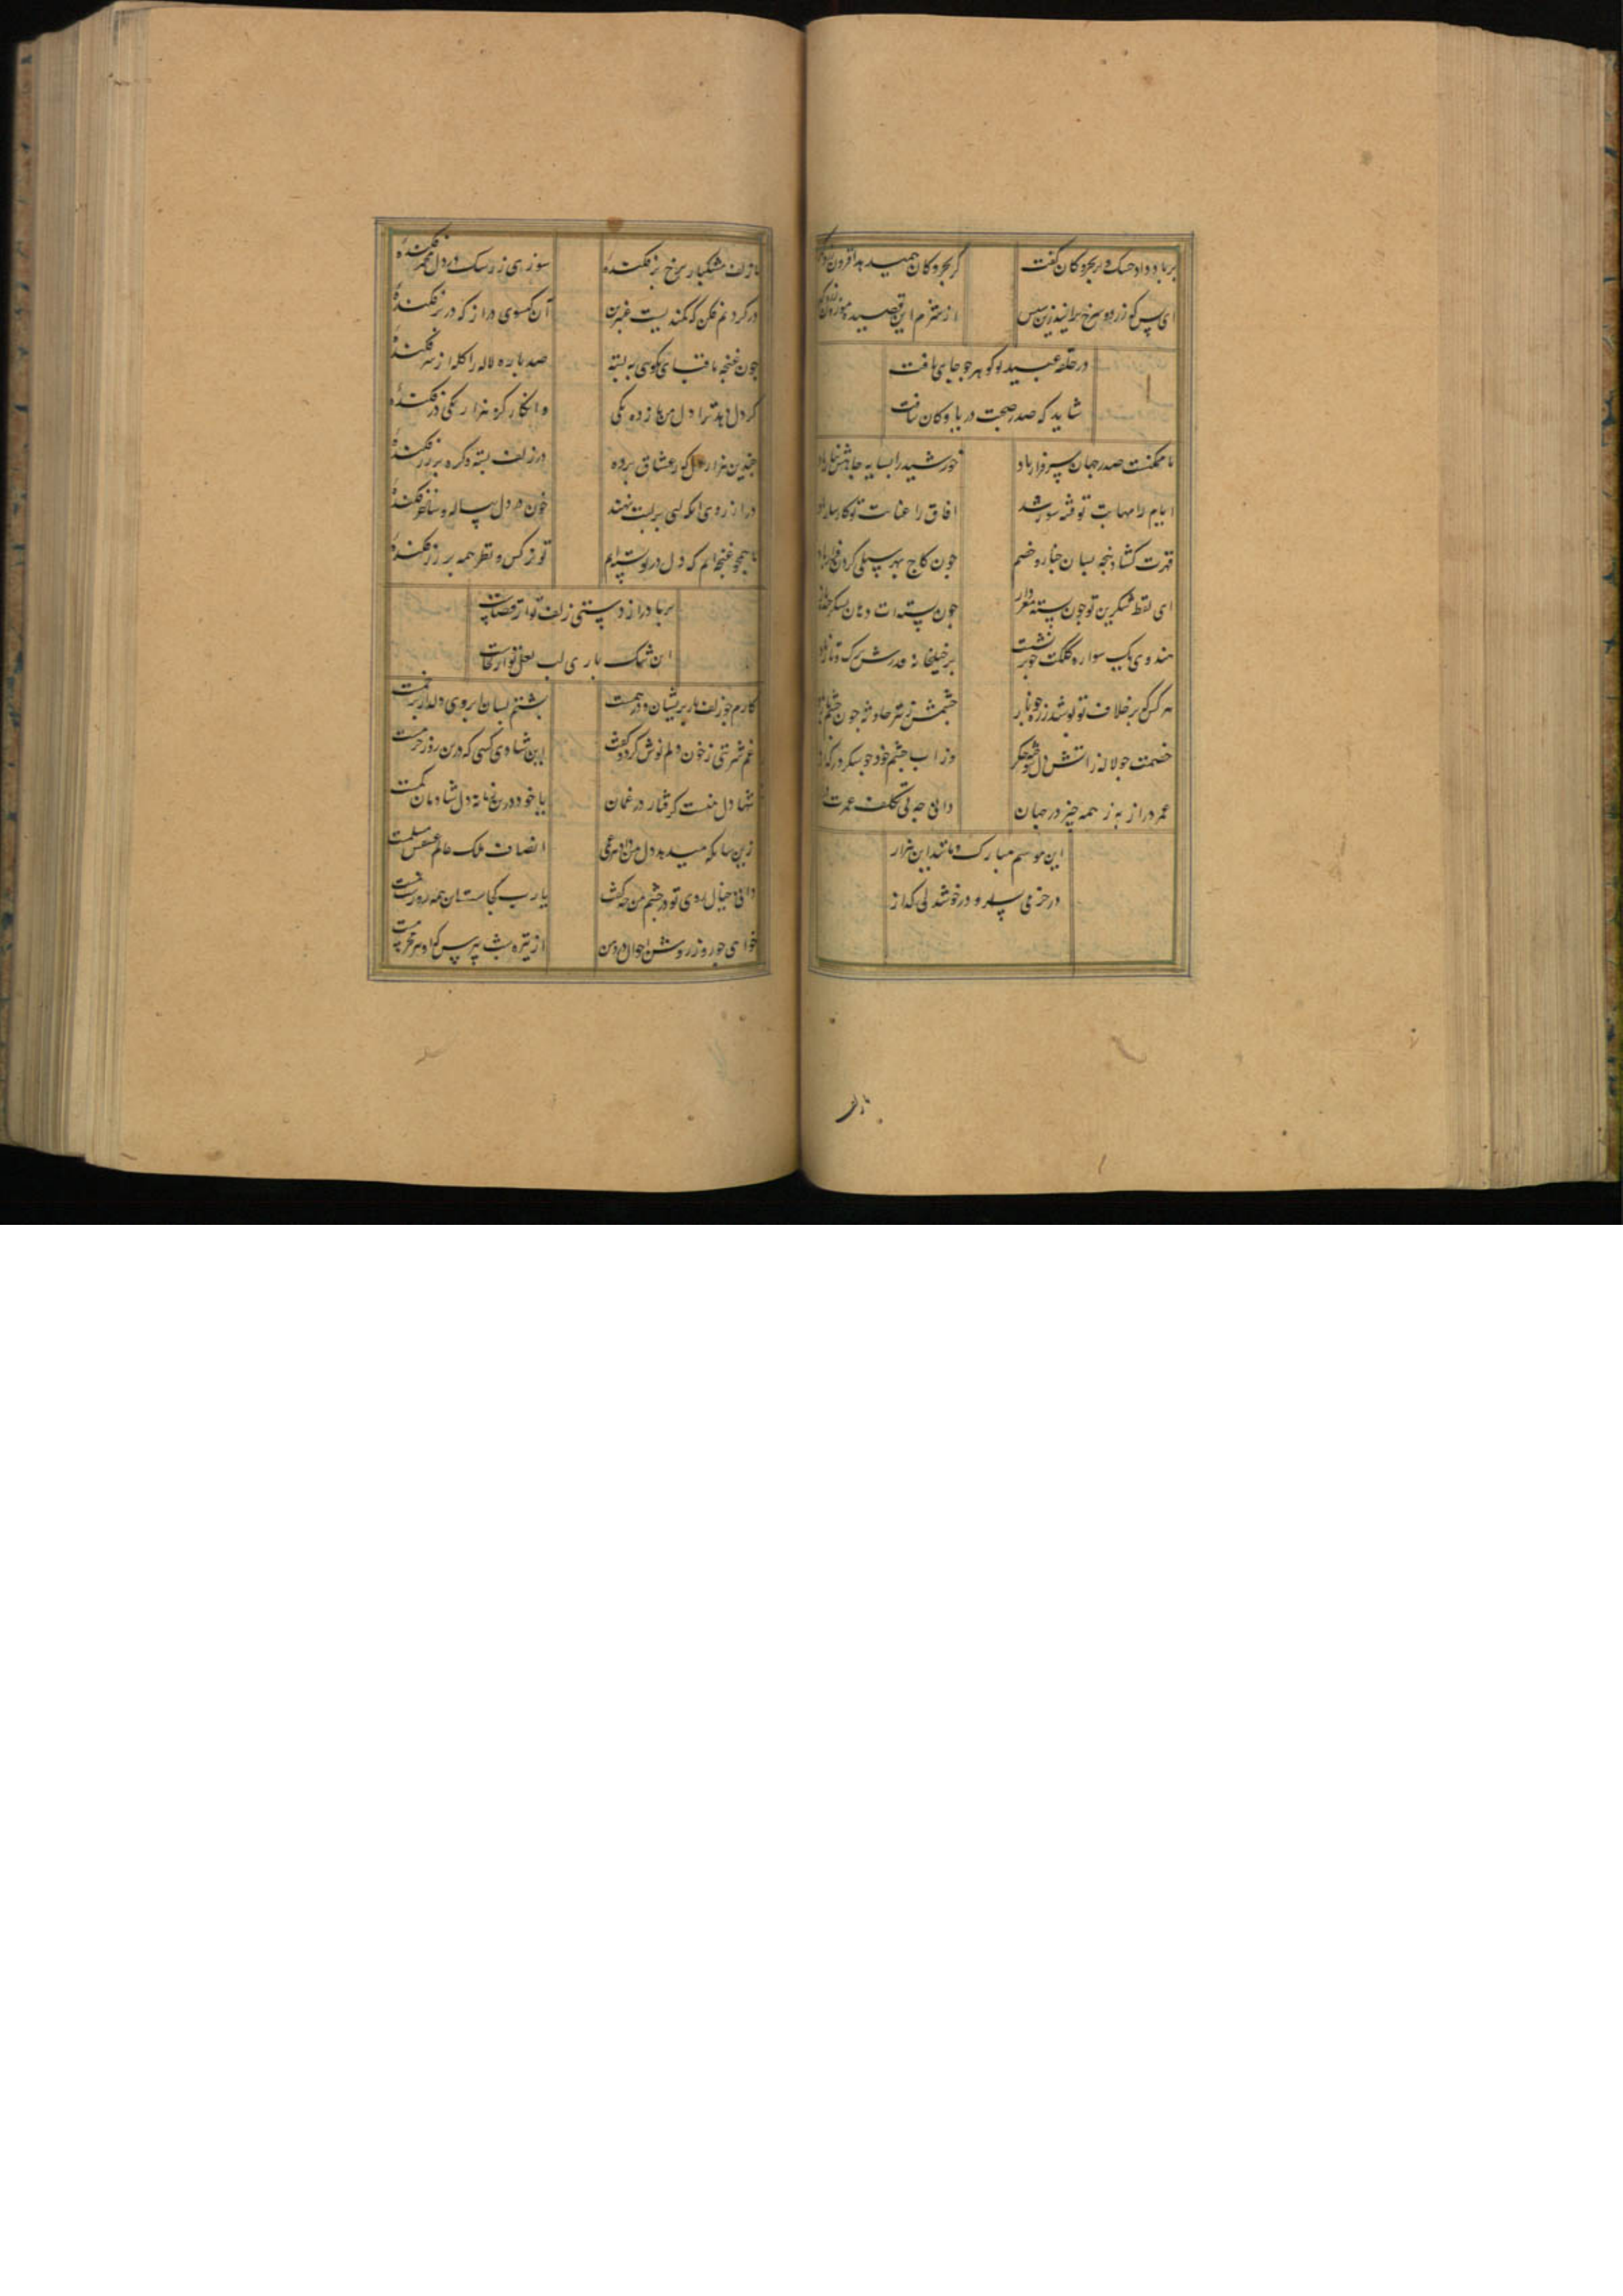 بر باد داد خشک و تر بحر و کان کفت
کر بحر و کان
ای پس که زرد و سرخ برآید زین سپس
از شرم این قصیده موزون
در حلقه عبید تو کوهر چو جای یافت
شاید که صدر صحبت دریا و کان
تا ممکنست صدر جهان سرفراز باد
خورشید را بسایه جاهش نیاز باد
ایام را مهابت تو فتنه سوز شد
افاق را عنایت تو کارساز باد
قهرت کشاد پنجه بسان چنار و خصم
چون کاج بهر سیلی کردن فراز باد
ای لفظ شکرین تو چون پسته مغزدار
چون پسته ات دهان
هندوی یک سواره کلکت چو بر نشست
بر خیلخانه
هر کس که بر خلاف تو پوشد زره چو
چشمش ز تیر حادثه چون چشم
خصمت چو لاله ز اتش دل سوخته جکر
وز اب چشم خود چو شکر در کداز
عمر دراز به ز همه چیز در جهان
دانی چه بی تکلف عمرت
این موسم مبارک و مانند این هزار
در خرمی بسر برو در خوشدلی کذار
تا زلف
تا زلف مشکبار برخ بر فکنده
سوزی ز رشک در دل مجمر فکنده
در کردنم فکن که کمندیست عنبرین
آن کیسوی دراز که در بر فکنده
چون غنچه تا قبای نکویی به بسته
صد باره لاله را کله از سر فکنده
کر دل دهد ترا دل من باز ده یکی
وانکار کز هزار یکی در فکنده
چندین هزار دل که ز عشاق برده
در زلف بسته و کره بر فکنده
در ارزوی انکه لبی بر لبت نهند
خون در دل پیاله و ساغر فکنده
ما همچو غنچه ایم که دل در تو بسته ایم
تو نرکس و نظر همه بر زر فکنده
بر ما دراز دستی زلف تو از قفاست
این شمک باری لب لعل تو از کجاست
کارم چو زلف یار پریشان و درهمست
پشتم بسان ابروی دلدار پر خمست
غم شربتی ز خون دلم نوش کرد و کفت
این شادی کسی که درین روز خرمست
تنها دل منست کرفتار در غمان
یا خود درین زمانه دل شادمان کمست
زین سان که میدهد دل من داد هر غمی
انصاف ملک عالم عشقش مسلمست
دانی خیال روی تو در چشم من چه کفت
یا رب
خواهی چو روز روشن احوال درد من
از تیره شب بپرس که او نیز محرمست